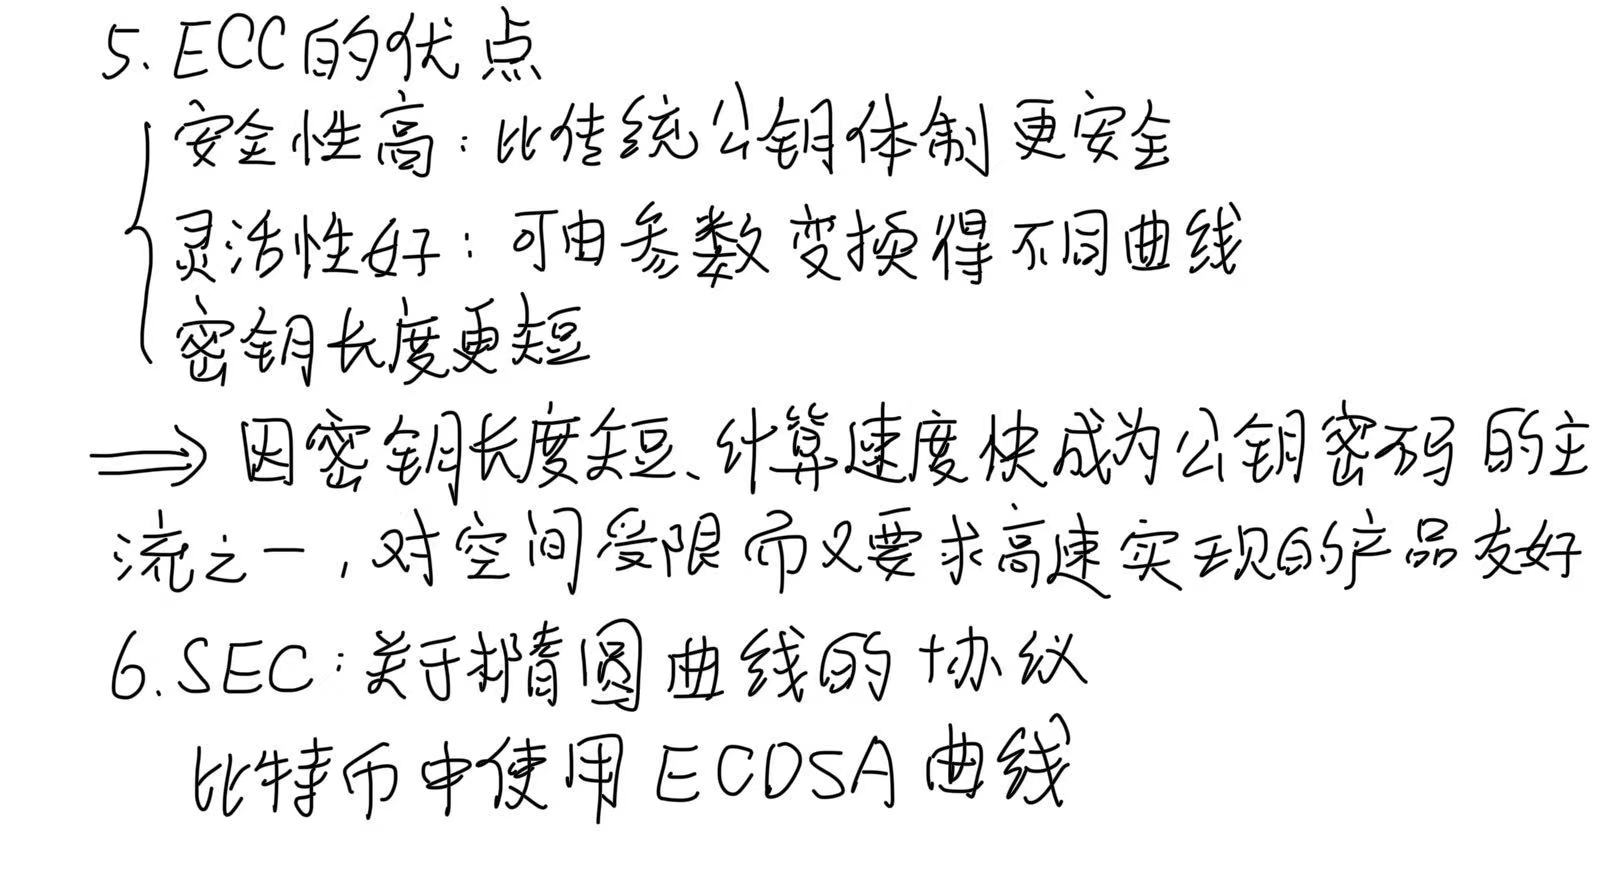 5. ECC的优点
安全性高：比传统公钥体制更安全
灵活性好：可由参数变换得不同曲线
密钥长度更短
⟹ 因密钥长度短、计算速度快成为公钥密码的主
流之一，对空间受限而又要求高速实现的产品友好
6. SEC：关于椭圆曲线的协议
比特币中使用ECDSA曲线